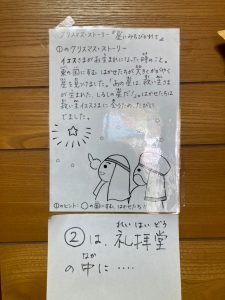 クリスマス・ストーリー『星にみちびかれて』
①のクリスマス・ストーリー
イエスさまがお生まれになった時のこと。
東の国にすむ、はかせたちが大きくかがやく
星を見つけました。「あの星は、救い主
が生まれた、しるしの星だ!」はかせたちは
救い主イエスさまに会うため、たびに
でました。
①のヒント:○の国にすむ、はかせたち!
②は、礼拝堂
れいはいどう
の中に‥‥
なか